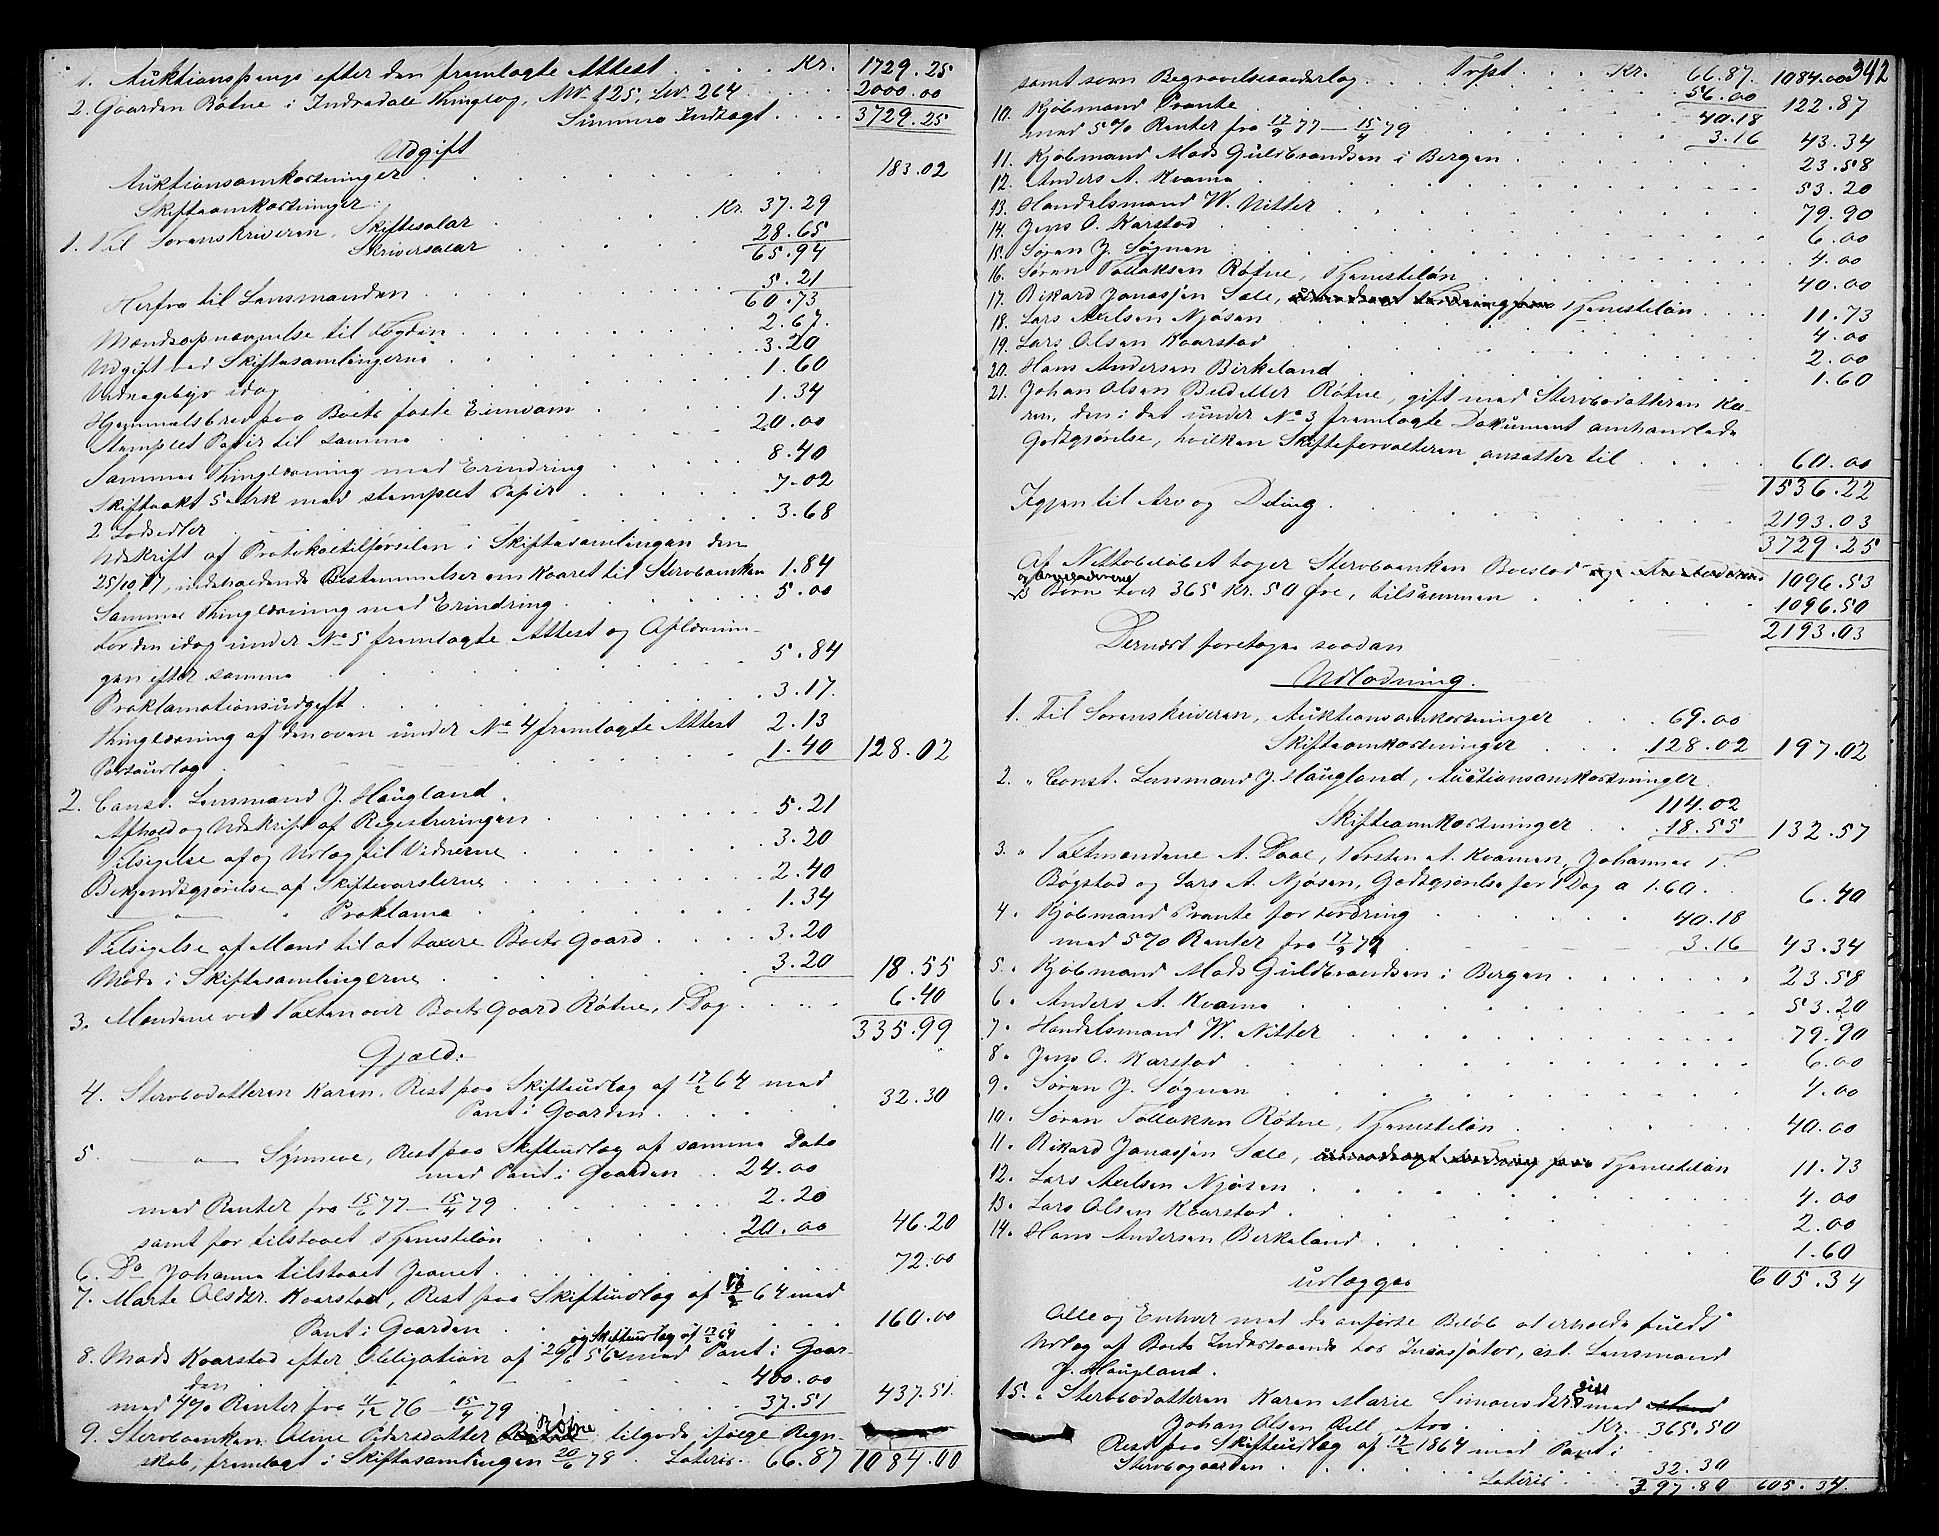 1. Auktionspenge efter den fremlagte Attest . . . . Kr. 1729.25
2. Gaarden Røtne i Indredale Thinglag, M.No 125, L.No 264 . . . . 2000.00
Summa Indtægt . . . . 3729.25
Udgift
Auktionsomkostninger . . . . 183.02
Skifteomkostninger.
1. Til Sorenskriveren, Skiftesalær . . . Kr. 37.29
Skriversalær . . . . 28.65
65.94
Herfra til Lensmanden . . . . 5.21
60.73
Mandsopnævnelse til Fogden . . . . 2.67.
Udgift ved Skiftesamlingerne . . . . 3.20
Vidnegebyr idag . . . . 1.60
Hjemmelsbrev paa Boets faste Eiendom . . . . 1.34
Stemplet Papir til samme . . . . 20.00
Sammes Thinglæsning med Erindring . . . . 8.40
Skifteakt 5 Ark med stemplet Papir . . . . 7.02
2 Lodsedler . . . . 3.68
Udskrift af Protokoltilførselen i Skiftesamlingen den
25/10 77, indeholdende Bestemmelser om Kaaret til Sterboenken 1.84
Sammes Thinglæsning med Erindring . . . . 5.00
For den idag under No 5 fremlagte Attest og Aflæsnin-
gen efter samme . . . . 5.84
Proklamationsudgift . . . . 3.17.
Thinglæsning af den oven under No 4 fremlagte Attest 2.13
Postudlæg . . . . 1.40 128.02
2. Const. Lensmand J. Haugland.
Afhold og Udskrift af Registreringen . . . . 5.21
Tilsigelse af og Udlæg til Vidnerne . . . . 3.20
Bekjendtgjørelse af Skiftevarslerne . . . . 2.40
" Proklama . . . . 1.34
Tilsigelse af Mænd til at taxere Boets Gaard . . . . 3.20
Møde i Skiftesamlingerne . . . . 3.20 18.55
3. Mændene ved Taxten over Boets Gaard Røtne, 1 Dag . . . . 6.40
335.99
Gjæld:
4. Sterbodatteren Karen, Rest paa Skifteudlæg af 17/2 64 med
Pant i Gaarden . . . . 32.30
5. —"— Synneve, Rest paa Skifteudlæg af samme Dato
med Pant i Gaarden . . 24.00
med Renter fra 15/6 77 – 15/4 79 . . . . 2.20
samt for tilstaaet Tjenesteløn . . . . 20.00 46.20
6. Do Johanna tilstaaet Jevnet . . . . 72.00
7. Marte Olsdtr. Kvarstad, Rest paa Skifteudlæg af 17/2 64 med
Pant i Gaarden . . . . 160.00
og Skifteudlæg af 17/2 64
8. Mads Kvarstad efter Obligation af 29/6 56 med Pant i Gaar-
den . . . . 400.00
med 4% Renter fra 4/12 76 – 15/4 79 . . . . 37.51 437.51.
9. Sterboenken Oline Pedersdatter Røtne tilgode ifølge Regn-
skab, fremlagt i Skiftesamlingen 20/6 78 . Lateris. 66.87 1084.00
342
Trpt. . . . Kr. 66.87. 1084.00
samt som Begravelsesudlæg . . . . 56.00 122.87
10. Kjøbmand Prante . . . . 40.18
med 5% Renter fra 17/9 77 – 15/4 79 . . . . 3.16 43.34
11. Kjøbmand Mads Guldbrandsen i Bergen . . . . 23.58
12. Anders A. Kvame . . . . 53.20
13. Handelsmand W. Nitter . . . . 79.90
14. Jens O. Karstad . . . . 6.00
15. Søren J. Søgnen . . . . 4.00
16. Søren Tollaksen Røtne, Tjenesteløn . . . . 40.00
17. Rikard Jonassen Sæle, Tjenesteløn . . . . 11.73
18. Lars Nilsen Njøsen . . . . 4.00
19. Lars Olsen Kvarstad . . . . 2.00
20. Hans Andersen Birkeland . . . . 1.60
21. Johan Olsen Bed eller Røtne, gift med Sterbodatteren Ka-
ren, den i det under No 3 fremlagte Dokument omhandlede
Godtgjørelse, hvilken Skifteforvalteren ansætter til . . . . 60.00
1536.22
Igjen til Arv og Deling . . . . 2193.03
3729.25
Af Nettobeløbet tager Sterboenken Boeslod 1096.53
3 Børn hver 365 Kr. 50 Øre, tilsammen . . . . 1096.50
2193.03
Dernæst foretoges saadan
Udlodning.
1. Til Sorenskriveren, Auktionsomkostninger . . . 69.00
Skifteomkostninger . . . 128.02 197.02
2. " Const. Lensmand J. Haugland, Auctionsomkostninger
114.02
Skifteomkostninger . . 18.55 132.57
3. " Taxtmændene A. Daae, Torsten A. Kvamen, Johannes T.
Bøgstad og Lars A. Njøsen, Godtgjørelse for 1 Dag a 1.60 . 6.40
4. " Kjøbmand Prante for Fordring . . . . 40.18
med 5% Renter fra 17/9 77 . . . . 3.16 43.34
5. " Kjøbmand Mads Guldbrandsen i Bergen . . . . 23.58
6. " Anders A. Kvame . . . . 53.20
7. " Handelsmand W. Nitter . . . . 79.90
8. " Jens O. Karstad . . . . 6.00
9. " Søren J. Søgnen . . . . 4.00
10. " Søren Tollaksen Røtne, Tjenesteløn . . . . 40.00
11. " Rikard Jonassen Sæle, Tjenesteløn 11.73
12. " Lars Nilsen Njøsen . . . . 4.00
13. " Lars Olsen Kvarstad . . . . 2.00
14. " Hans Andersen Birkeland . . . . 1.60
udlægges 605.34
Alle og Enhver med de anførte Beløb at erholde fuldt
Udlæg af Boets Indestaaende hos Incassator, cst. Lensmand
J. Haugland.
15. " Sterbodatteren Karen Marie Simonsdtr. gift med
Johan Olsen Bell Arv . . Kr. 365.50
Rest paa Skifteudlæg af 17/2 1864 med Pant i
Sterbogaarden . . . . 32.30
Lateris . . . 397.80 605.34.